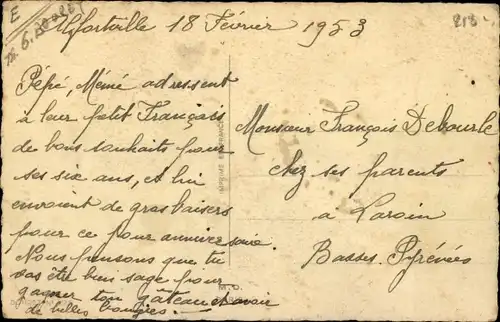 Alfortville 18 Février 1953
Pépé, Mémé adressent
à leur petit Français
de bons souhaits pour
ses six ans, et lui
envoient de gros baisers
pour ce pour anniversaire.
Nous pensons que tu
vas être bien sage pour
gagner ton gâteau et avoir
de belles bougies.
Monsieur François Debourle
chez ses parents
à Laroin
Basses Pyrénées